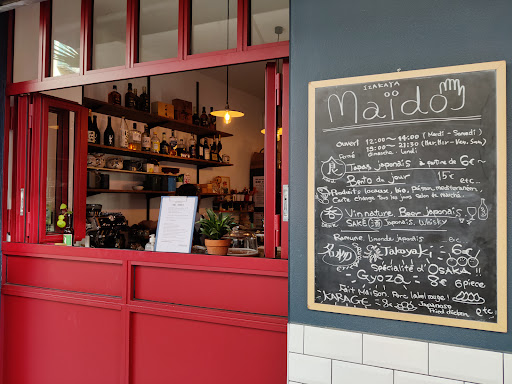 IZAKAYA
Maido
Ouvert 12:00~14:00 (Mardi - Samedi)
19:00~21:30 (Mar, Mer, Ven, Sam)
Fermé dimanche, Lundi
食
Tapas japonais à partire de 6€~
Bento du jour 15€ etc
Produits locaux, bio, péison, mediterranéen.
Carte change Tous les jours selon le marché
Vin nature, Beer Japonais
SAKE (酒) Japonais, Whisky
Ramune, Limonde japonais 6€
Takoyaki
Spécialité d'OSAKA!!
Gyoza = 8€ 6 piece
Fait Maison, Porc label rouge!
KARAGE = 9€ Japanese
Fried chicken etc